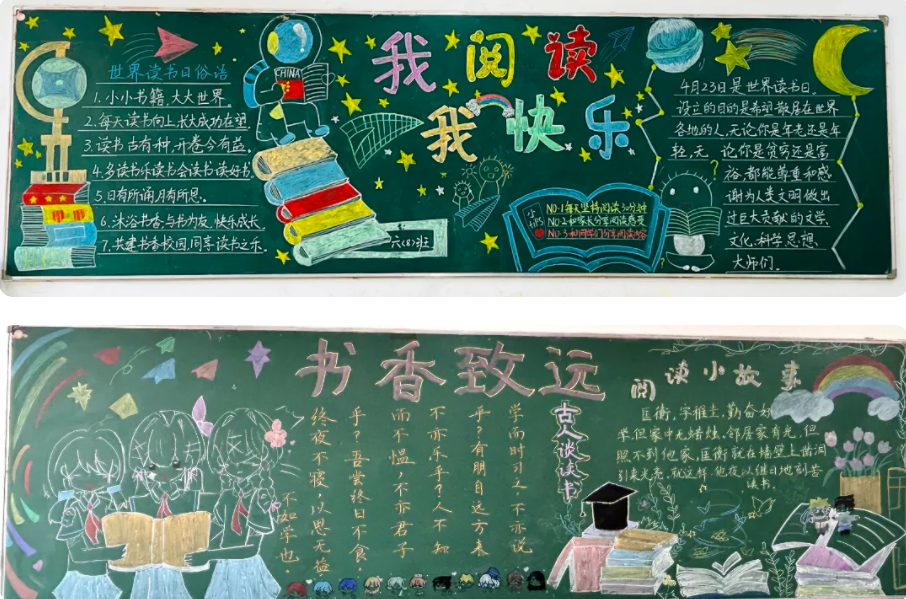 我阅读
我快乐
世界读书日俗语
1.小小书籍,大大世界。
2.每天读书向上,长大成功在望
3.读书古有种,开卷今有益。
4.多读书乐读书会读书读好书
5.日有所诵,月有所思。
6.沐浴书香,与书为友,快乐成长
7.共建书香校园,同享读书之乐。
CHINA
六(8)班
小
TIPS
NO.1每天坚持阅读30分钟
NO.2和家长分享阅读感受
NO.3和同学们分享阅读内容
4月23日是世界读书日。
设立的目的是希望散居在世界
各地的人,无论你是年老还是年
轻,无论你是贫穷还是富
裕,都能尊重和感
谢为人类文明做出
过巨大贡献的文学
文化,科学,思想
大师们。
书香致远
古人谈读书
学而时习之,不亦说
乎?有朋自远方来
不亦乐乎?人不知
而不愠,不亦君子
乎?吾尝终日不食,
终夜不寝,以思,无益
不如学也
阅读小故事
匡衡,字稚圭,勤奋好
学,但家中无蜡烛。邻居家有光,但
照不到他家,匡衡就在墙壁上凿洞
引来光亮,就这样,他夜以继日地刻苦
读书。